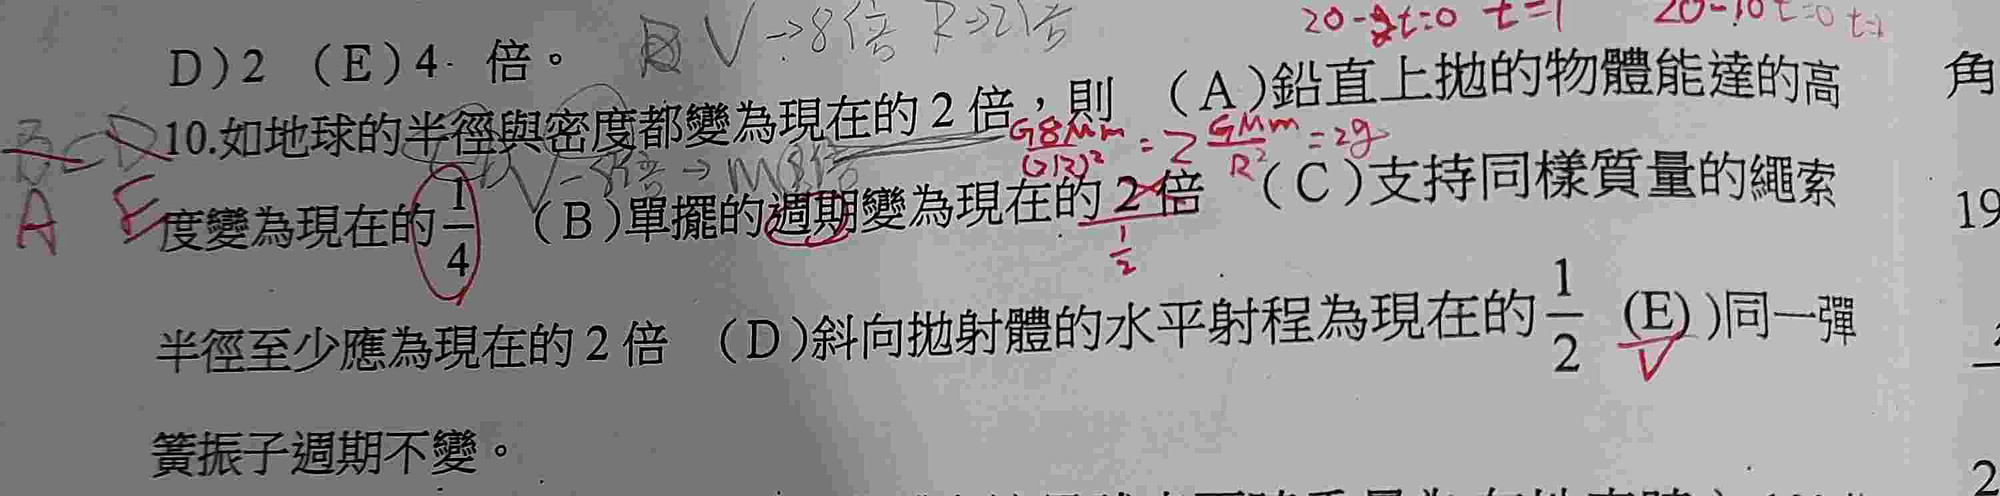 V→8倍 R→2倍
20-2t=0 t=1 20-10t=0
D)2 (E)4. 倍。
角
10.如地球的半徑與密度都變為現在的2倍,則 (A)鉛直上拋的物體能達的高
G8Mm/(2R)² = 2 GMm/R² = 2g
V→8倍→M8倍
A E
度變為現在的1/4 (B)單擺的週期變為現在的2倍 (C)支持同樣質量的繩索
19
1/2
半徑至少應為現在的2倍 (D)斜向拋射體的水平射程為現在的1/2 (E))同一彈
簧振子週期不變。
2